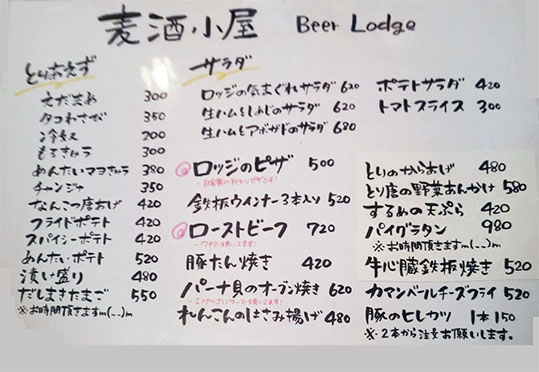 麦酒小屋 Beer Lodge
とりあえず
えだまめ 300
タコわさび 350
冷奴 200
もろきゅう 300
めんたいマヨきゅうり 380
チャンジャ 350
なんこつ唐あげ 420
フライドポテト 420
スパイシーポテト 420
めんたいポテト 520
漬け盛り 480
だしまきたまご 550
※お時間頂きますm(_ _)m
サラダ
ロッジの気まぐれサラダ 620
生ハムとしめじのサラダ 620
生ハムとアボガドのサラダ 680
ポテトサラダ 420
トマトスライス 300
ロッジのピザ 500
鉄板ウインナー3本入り 520
ローストビーフ 720
豚たん焼き 420
パーナ貝のオーブン焼き 620
れんこんのはさみ揚げ 480
とりのからあげ 480
とり唐の野菜あんかけ 580
するめの天ぷら 420
パイグラタン 980
※お時間頂きますm(_ _)m
牛心臓鉄板焼き 520
カマンベールチーズフライ 520
豚のヒレカツ 1本150
※2本から注文お願いします。